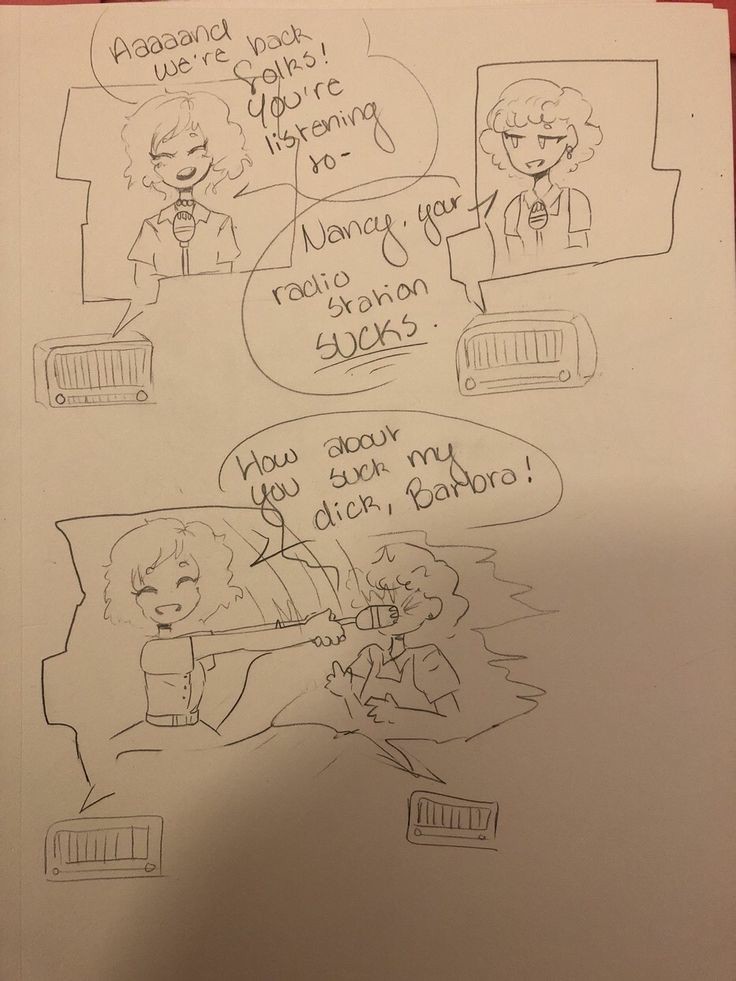 Aaaaand
we're back
folks!
You're
listening
to-
Nancy, your
radio
station
SUCKS.
How about
you suck my
dick, Barbra!